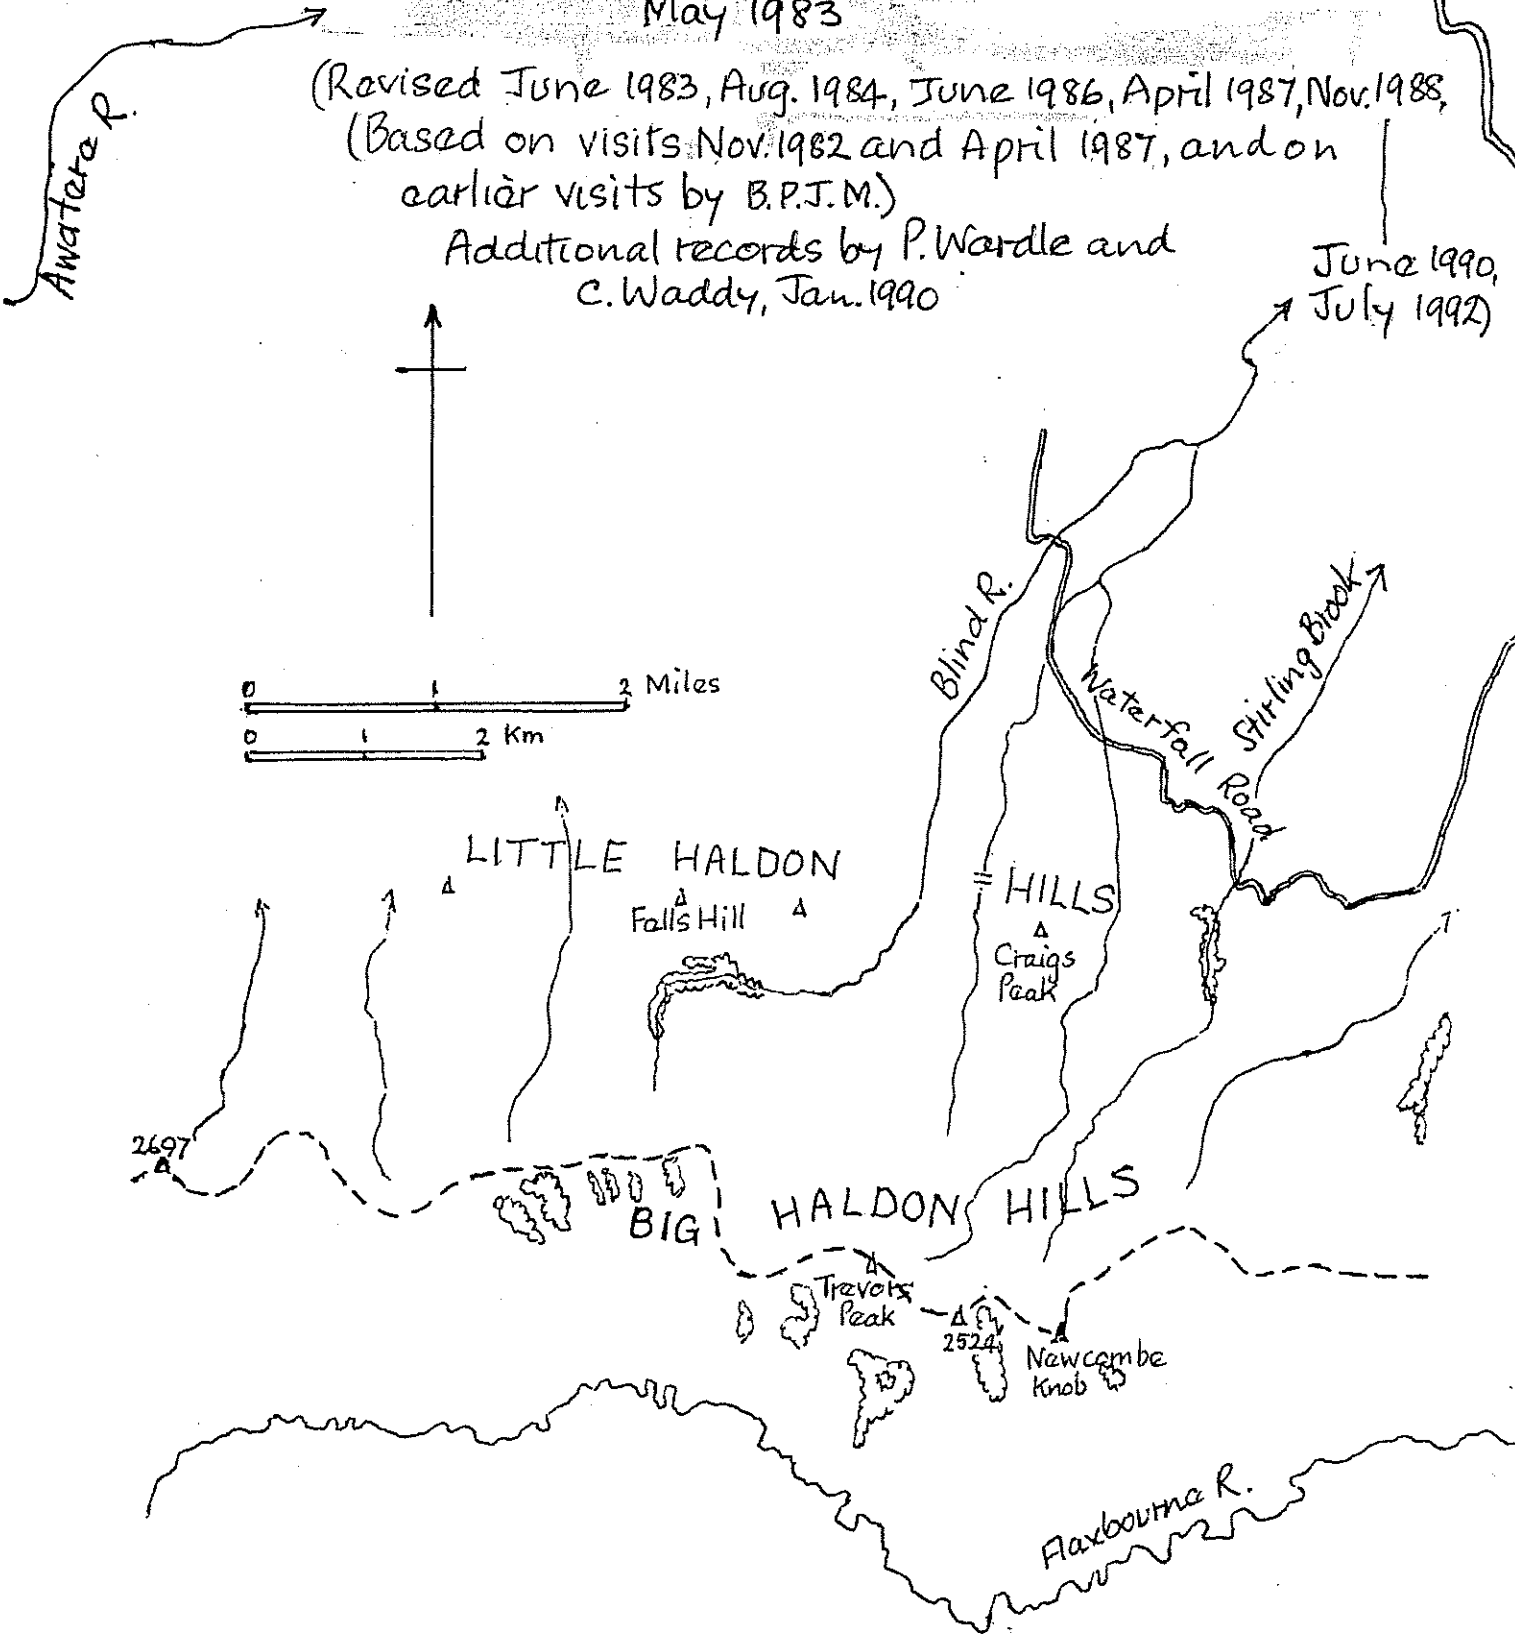 May 1983
(Revised June 1983, Aug. 1984, June 1986, April 1987, Nov. 1988,
(Based on visits Nov. 1982 and April 1987, and on
earlier visits by B.P.J.M.)
Additional records by P. Wardle and
C. Waddy, Jan. 1990
June 1990,
July 1992)
Awatere R.
Blind R.
Waterfall Road
Stirling Brook
0 1 2 Miles
0 1 2 Km
LITTLE HALDON HILLS
Falls Hill
Craigs
Peak
2697
BIG HALDON HILLS
Trevors
Peak
2524
Newcombe
Knob
Flaxbourne R.